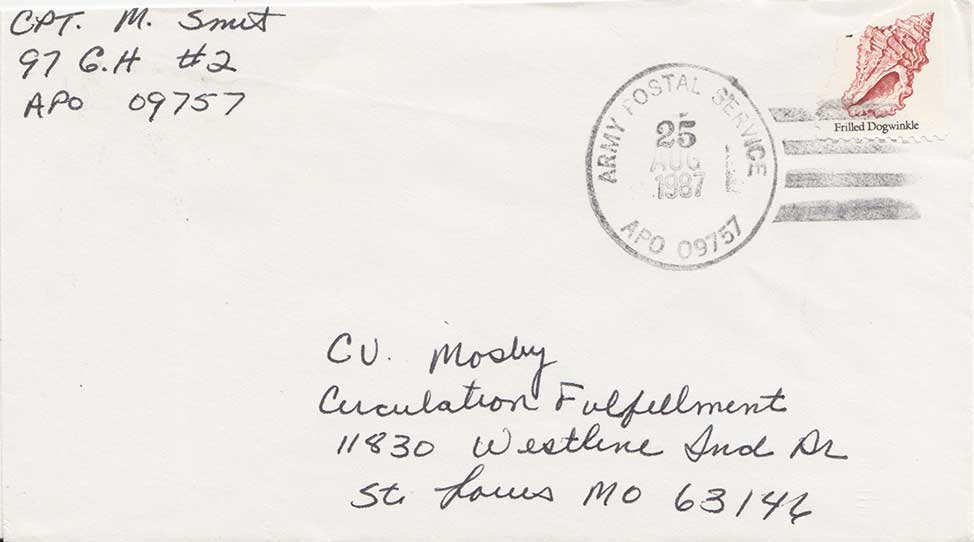 CPT. M. Smit
97 G.H #2
APO 09757
Frilled Dogwinkle
ARMY POSTAL SERVICE
25
AUG
1987
APO 09757
CV. Mosby
Circulation Fulfillment
11830 Westline Ind Dr
St. Louis MO 63146